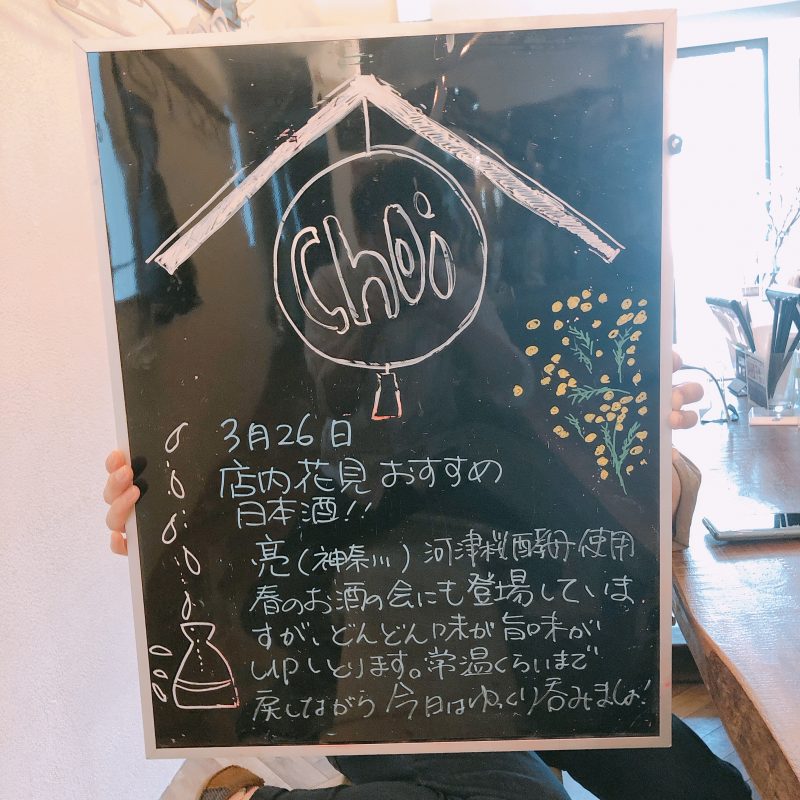 Choi
3月26日
店内花見おすすめ
日本酒!!
亮(神奈川) 河津桜酵母使用
春のお酒の会にも登場していま
すが、どんどん味が旨味が
upしとります。常温くらいまで
戻しながら今日はゆっくり呑みましょ!